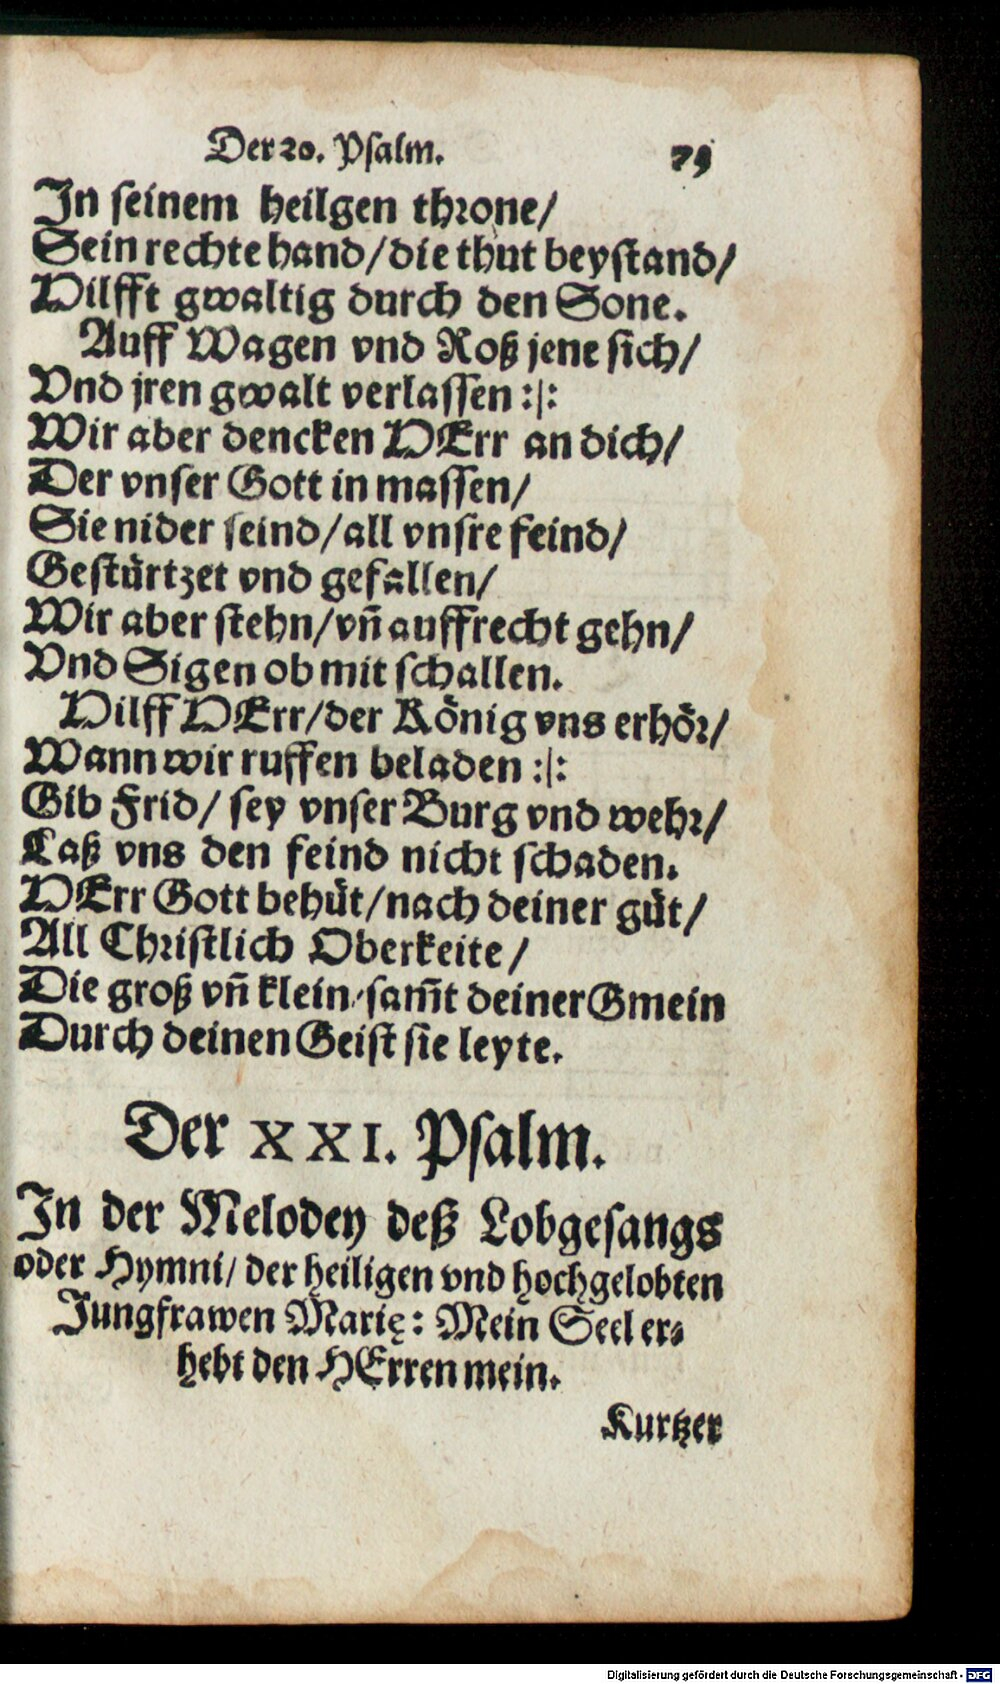 Der 20. Psalm. 79
In seinem heilgen throne/
Sein rechte hand/die thut beystand/
Hilfft gwaltig durch den Sone.
Auff Wagen vnd Roß jene sich/
Vnd jren gwalt verlassen :|:
Wir aber dencken HErr an dich/
Der vnser Gott in massen/
Sie nider seind/all vnsre feind/
Gestürtzet vnd gefallen/
Wir aber stehn/vñ auffrecht gehn/
Vnd Sigen ob mit schallen.
Hilff HErr/der König vns erhör/
Wann wir ruffen beladen :|:
Gib Frid/ sey vnser Burg vnd wehr/
Laß vns den feind nicht schaden.
HErr Gott behüt/nach deiner güt/
All Christlich Oberkeite/
Die groß vñ klein/sam̃t deiner Gmein
Durch deinen Geist sie leyte.
Der XXI. Psalm.
In der Melodey deß Lobgesangs
oder Hymni/ der heiligen vnd hochgelobten
Jungfrawen Marię: Mein Seel er-
hebt den HErren mein.
Kurtzer
Digitalisierung gefördert durch die Deutsche Forschungsgemeinschaft - DFG